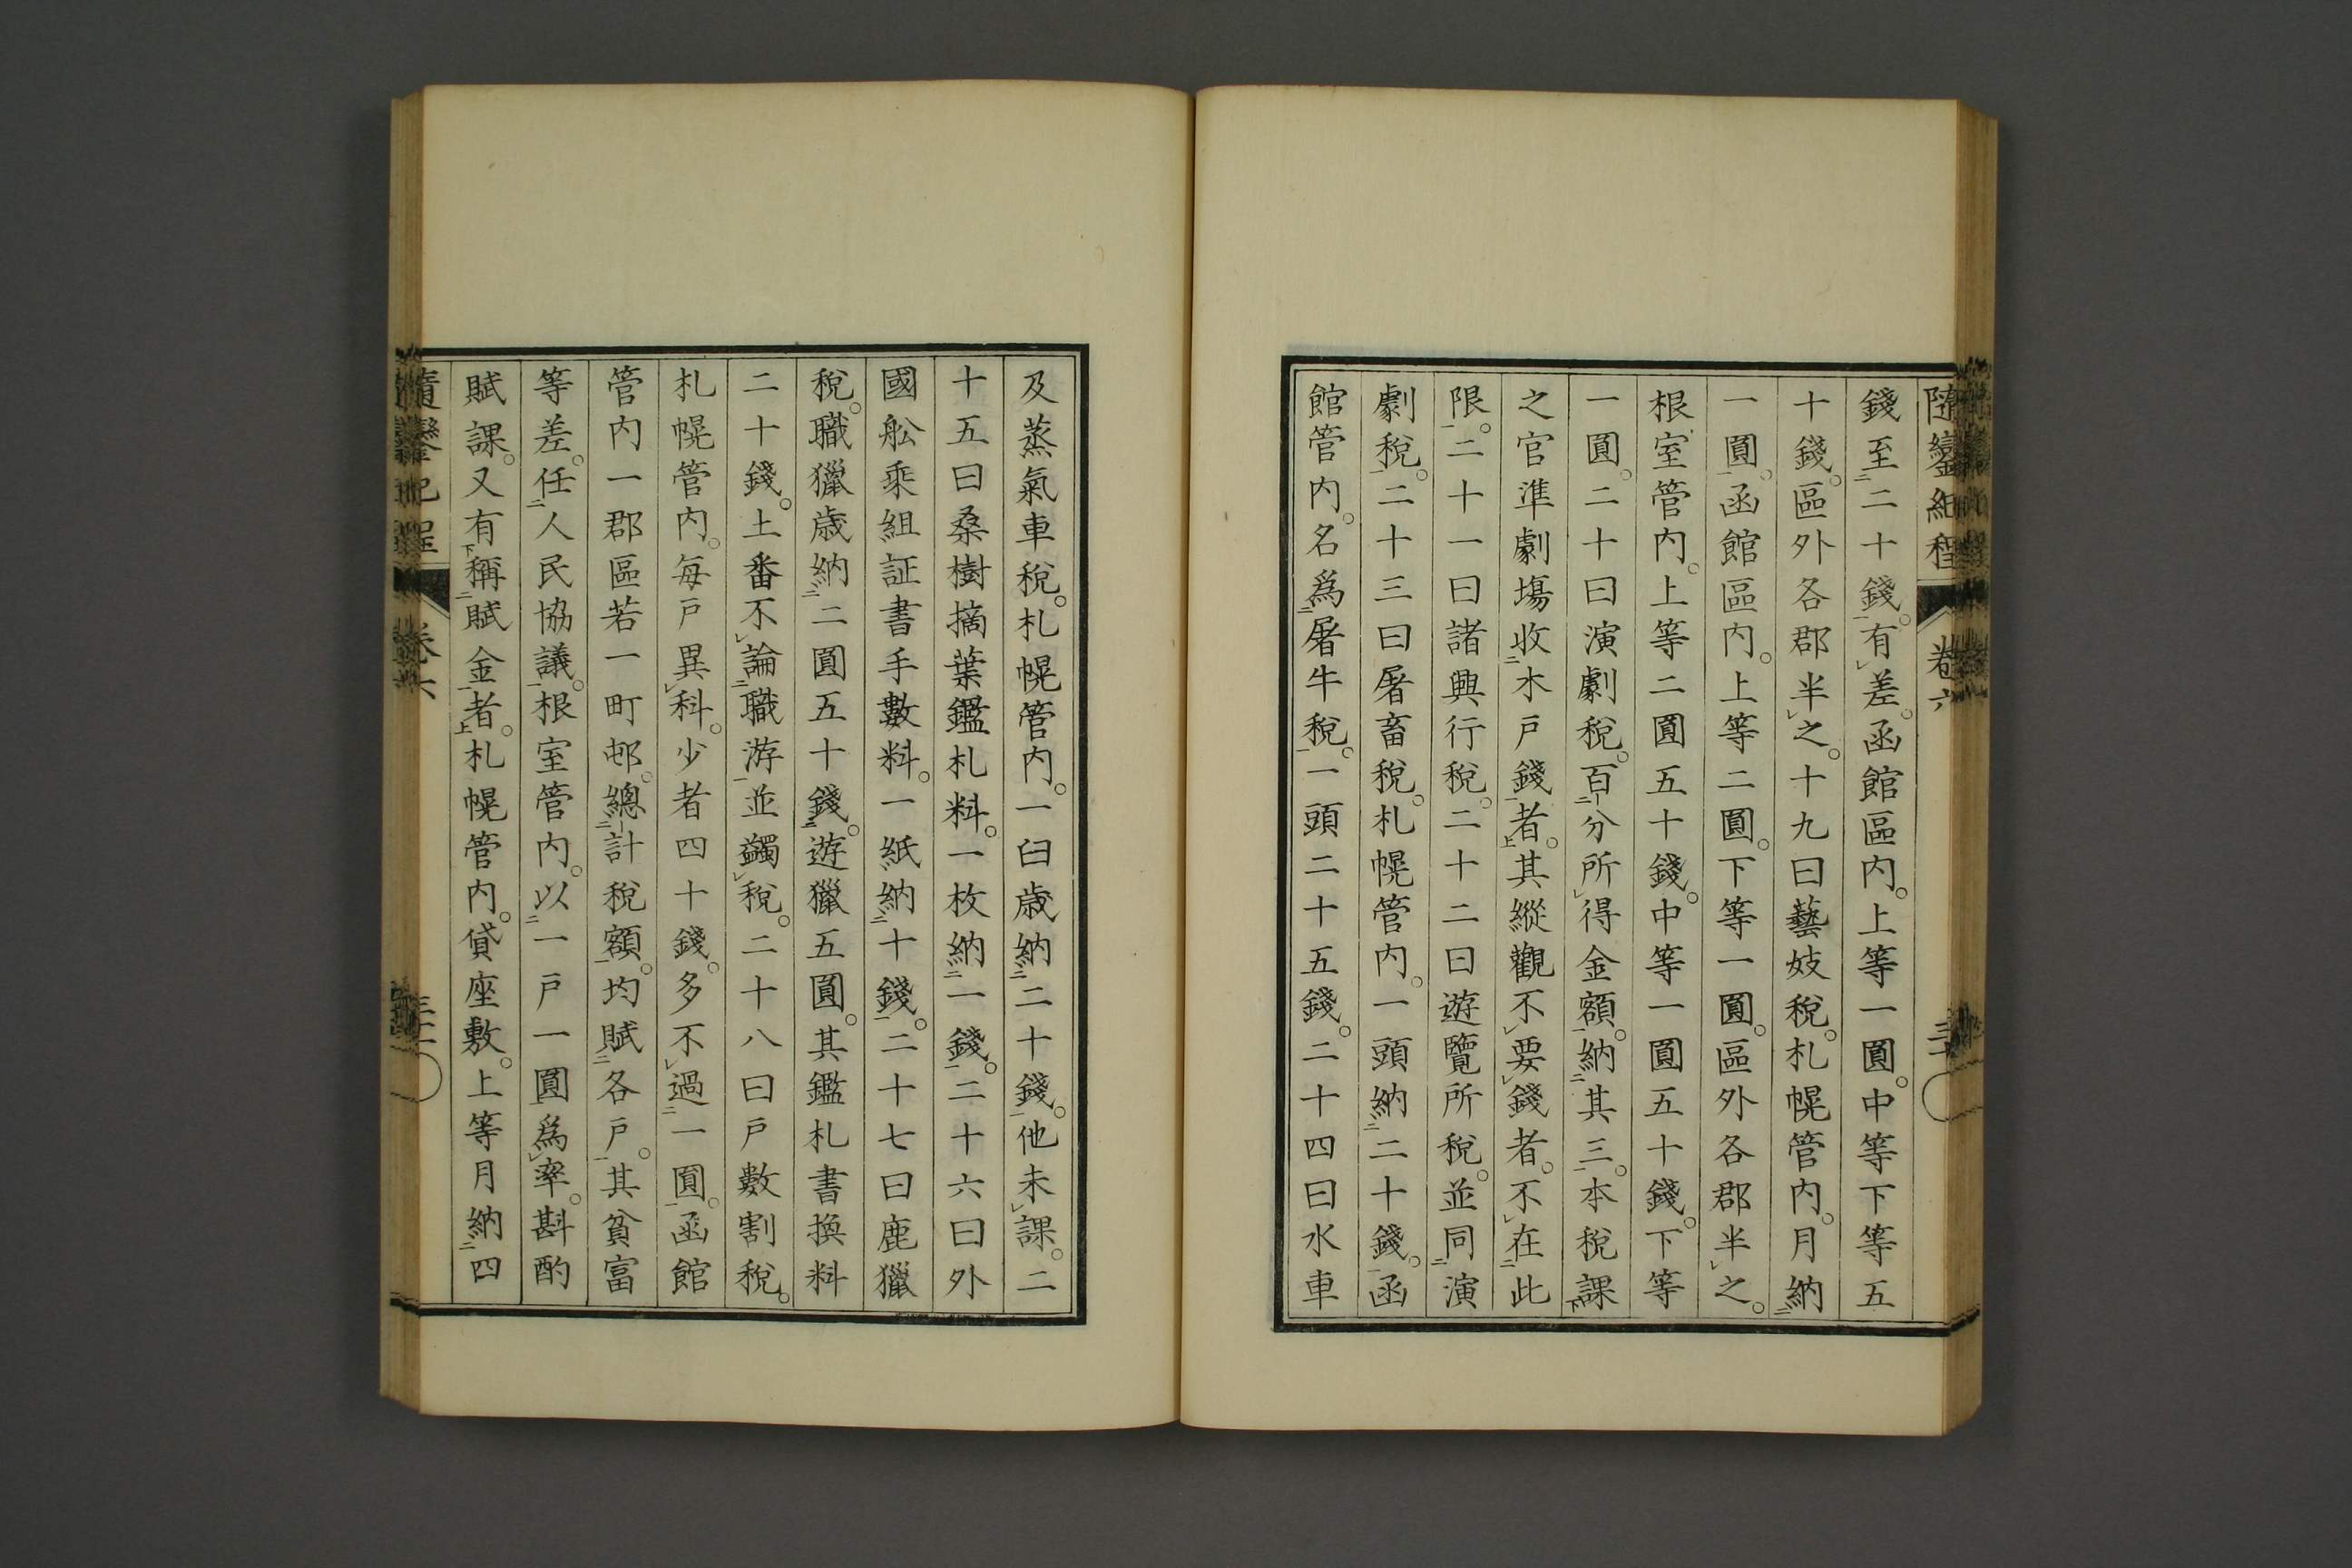 隨鑾紀程 卷六
錢至二十錢。有差。函館區內。上等一圓。中等下等五
十錢。區外各郡半之。十九曰藝妓稅。札幌管内。月納
一圓。函館區内。上等二圓。下等一圓。區外各郡半之。
根室管内。上等二圓五十錢。中等一圓五十錢。下等
一圓。二十曰演劇稅。百分所得金額。納其三。本稅課
之官準劇場收木戶錢者。其縱觀不要錢者。不在此
限。二十一曰諸興行稅。二十二曰遊覽所稅。並同演
劇稅。二十三曰屠畜稅。札幌管内。一頭納二十錢。函
館管内。名爲屠牛稅。一頭二十五錢。二十四曰水車
及蒸氣車稅。札幌管内。一臼歲納二十錢。他未課。二
十五曰桑樹摘葉鑑札料。一枚納一錢。二十六曰外
國舩乘組証書手數料。一紙納十錢。二十七曰鹿獵
稅。職獵歲納二圓五十錢。遊獵五圓。其鑑札書換料
二十錢。土番不論職游並蠲稅。二十八曰戶數割稅。
札幌管内。每戶異科。少者四十錢。多不過一圓。函館
管内一郡區若一町邨。總計稅額。均賦各戶。其貧富
等差。任人民協議。根室管内。以一戶一圓爲率。斟酌
賦課。又有稱賦金者。札幌管内。貸座敷。上等月納四
隨鑾紀程 卷六